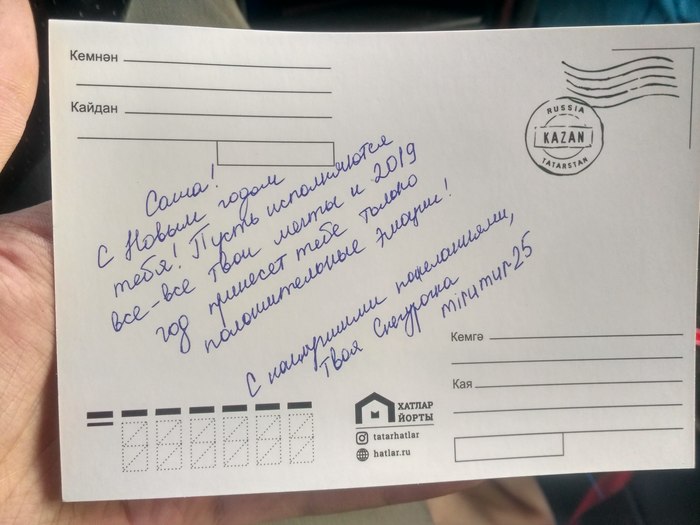 Кемнән
Кайдан
RUSSIA
KAZAN
TATARSTAN
Саша!
С Новым годом
тебя! Пусть исполняются
все-все твои мечты и 2019
год принесет тебе только
положительные эмоции!
С наилучшими пожеланиями,
Твоя Снегурочка
mirumur25
Кемгә
Кая
ХАТЛАР
ЙОРТЫ
tatarhatlar
hatlar.ru